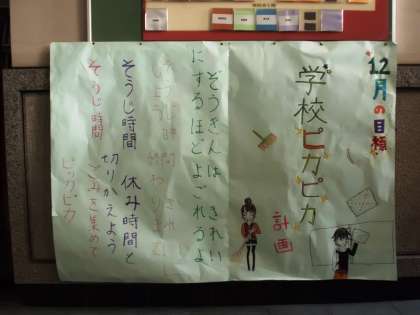 12月の目標
学校ピカピカ
計画
ぞうきんは きれい
にするほどよごれるよ
そうじ時間 休み時間と
切りかえよう
そうじ時間 ごみを集めて
ピッカピカ